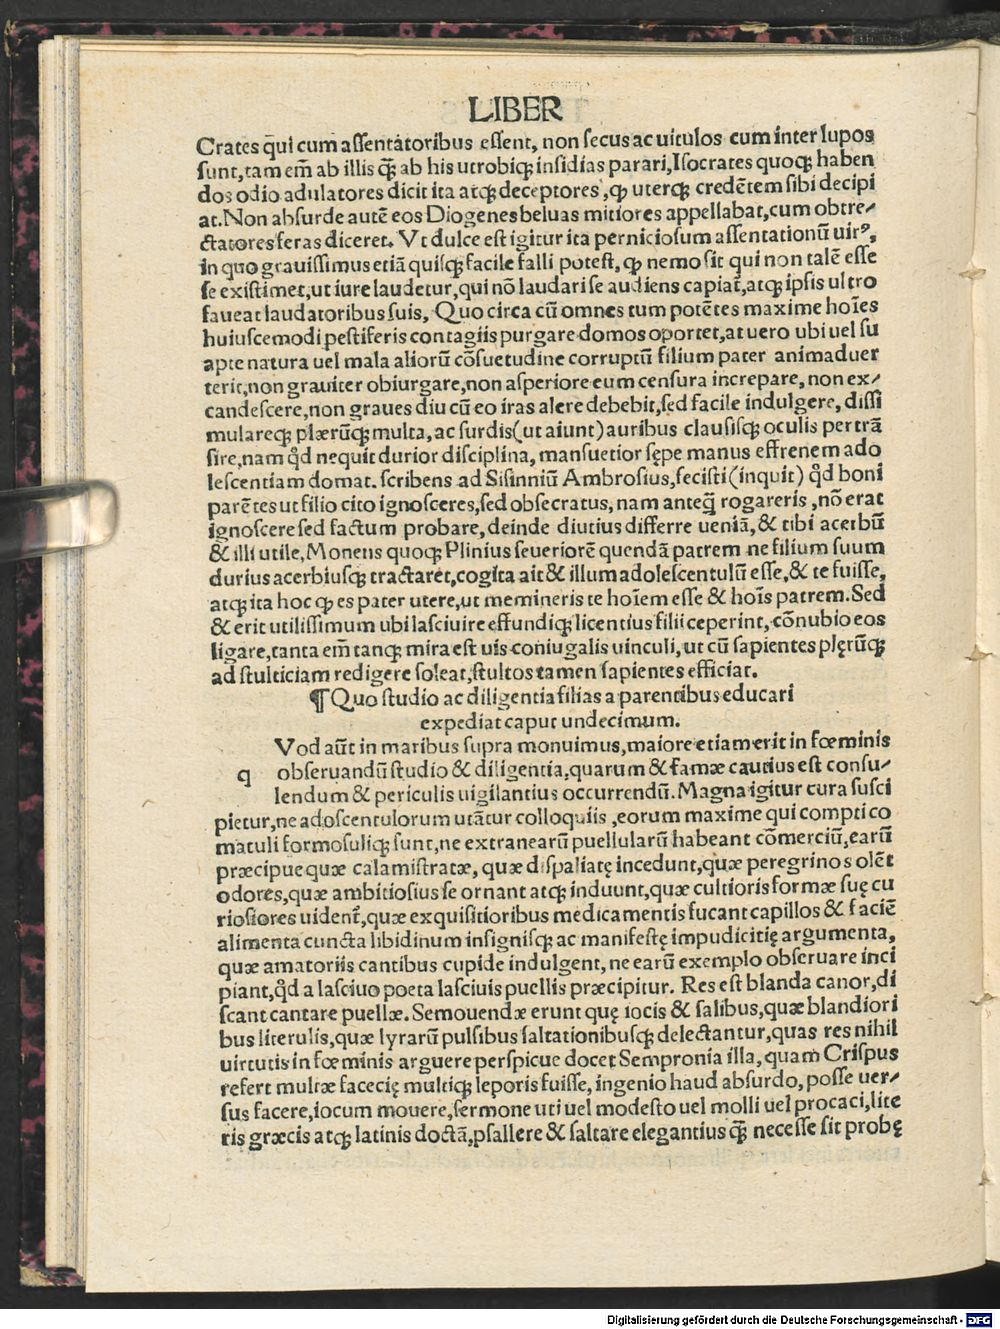 LIBER
Crates q̃ui cum aſſentatoribus eſſent, non ſecus ac uitulos cum inter lupos
ſunt, tam em̃ ab illis q̃ꝫ ab his utrobiqꝫ inſidias parari, Iſocrates quoqꝫ haben
dos odio adulatores dicit ita atqꝫ deceptores, ꝙ uterqꝫ credẽtem ſibi decipi
at. Non abſurde autẽ eos Diogenes beluas mitiores appellabat, cum obtre⸗
ctatores feras diceret. Vt dulce eſt igitur ita pernicioſum aſſentationũ uirꝰ,
in quo grauiſſimus etiã quiſqꝫ facile falli poteſt, ꝙ nemo ſit qui non talẽ eſſe
ſe exiſtimet, ut iure laudetur, qui nõ laudari ſe audiens capiat̃, atqꝫ ipſis ultro
faueat laudatoribus ſuis, Quo circa cũ omnes tum potẽtes maxime hoĩes
huiuſcemodi peſtiferis contagiis purgare domos oportet, at uero ubi uel ſu
apte natura uel mala aliorũ cõſuetudine corruptũ filium pater animaduer
terit, non grauiter obiurgare, non aſperiore eum cenſura increpare, non ex⸗
candeſcere, non graues diu cũ eo iras alere debebit, ſed facile indulgere, diſſi
mulareqꝫ plærũqꝫ multa, ac ſurdis (ut aiunt) auribus clauſiſqꝫ oculis pertrã
ſire, nam qd̃ nequit durior diſciplina, manſuetior ſępe manus effrenem ado
leſcentiam domat. ſcribens ad Siſinniũ Ambroſius, feciſti (inquit) qd̃ boni
parẽtes ut filio cito ignoſceres, ſed obſecratus, nam anteq̃ rogareris, nõ erat
ignoſcere ſed factum probare, deinde diutius differre ueniã, & tibi acerbũ
& illi utile, Monens quoqꝫ Plinius ſeueriorẽ quendã patrem ne filium ſuum
durius acerbiuſqꝫ tractaret, cogita ait & illum adoleſcentulũ eſſe, & te fuiſſe,
atqꝫ ita hoc ꝙ es pater utere, ut memineris te hoĩem eſſe & hoĩs patrem. Sed
& erit utiliſſimum ubi laſciuire effundiqꝫ licentius filii ceperint, cõnubio eos
ligare, tanta em̃ tanqꝫ mira eſt uis coniugalis uinculi, ut cũ ſapientes plęrũqꝫ
ad ſtulticiam redigere ſoleat, ſtultos tamen ſapientes efficiat.
¶ Quo ſtudio ac diligentia filias a parentibus educari
expediat caput undecimum.
Vod aũt in maribus ſupra monuimus, maiore etiam erit in fœminis
q obſeruandũ ſtudio & diligentia, quarum & famæ cautius eſt conſu⸗
lendum & periculis uigilantius occurrendũ. Magna igitur cura ſuſci
pietur, ne adoſcentulorum utãtur colloquiis, eorum maxime qui compti co
matuli formoſuliqꝫ ſunt, ne extranearũ puellularũ habeant cõmerciũ, earũ
præcipue quæ calamiſtratæ, quæ diſpaliatę incedunt, quæ peregrinos olẽt
odores, quæ ambitioſius ſe ornant atqꝫ induunt, quæ cultioris formæ ſuę cu
rioſiores uident̃, quæ exquiſitioribus medicamentis fucant capillos & faciẽ
alimenta cuncta libidinum inſigniſqꝫ ac manifeſtę impudicitię argumenta,
quæ amatoriis cantibus cupide indulgent, ne earũ exemplo obſeruare inci
piant, qd̃ a laſciuo poeta laſciuis puellis præcipitur. Res eſt blanda canor, di
ſcant cantare puellæ. Semouendæ erunt quę iocis & ſalibus, quæ blandiori
bus literulis, quæ lyrarũ pulſibus ſaltationibuſqꝫ delectantur, quas res nihil
uirtutis in fœminis arguere perſpicue docet Sempronia illa, quam Criſpus
refert multæ facecię multiqꝫ leporis fuiſſe, ingenio haud abſurdo, poſſe uer⸗
ſus facere, iocum mouere, ſermone uti uel modeſto uel molli uel procaci, lite
ris græcis atqꝫ latinis doctã, pſallere & ſaltare elegantius q̃ꝫ neceſſe ſit probę
Digitalisierung gefördert durch die Deutsche Forschungsgemeinschaft - DFG